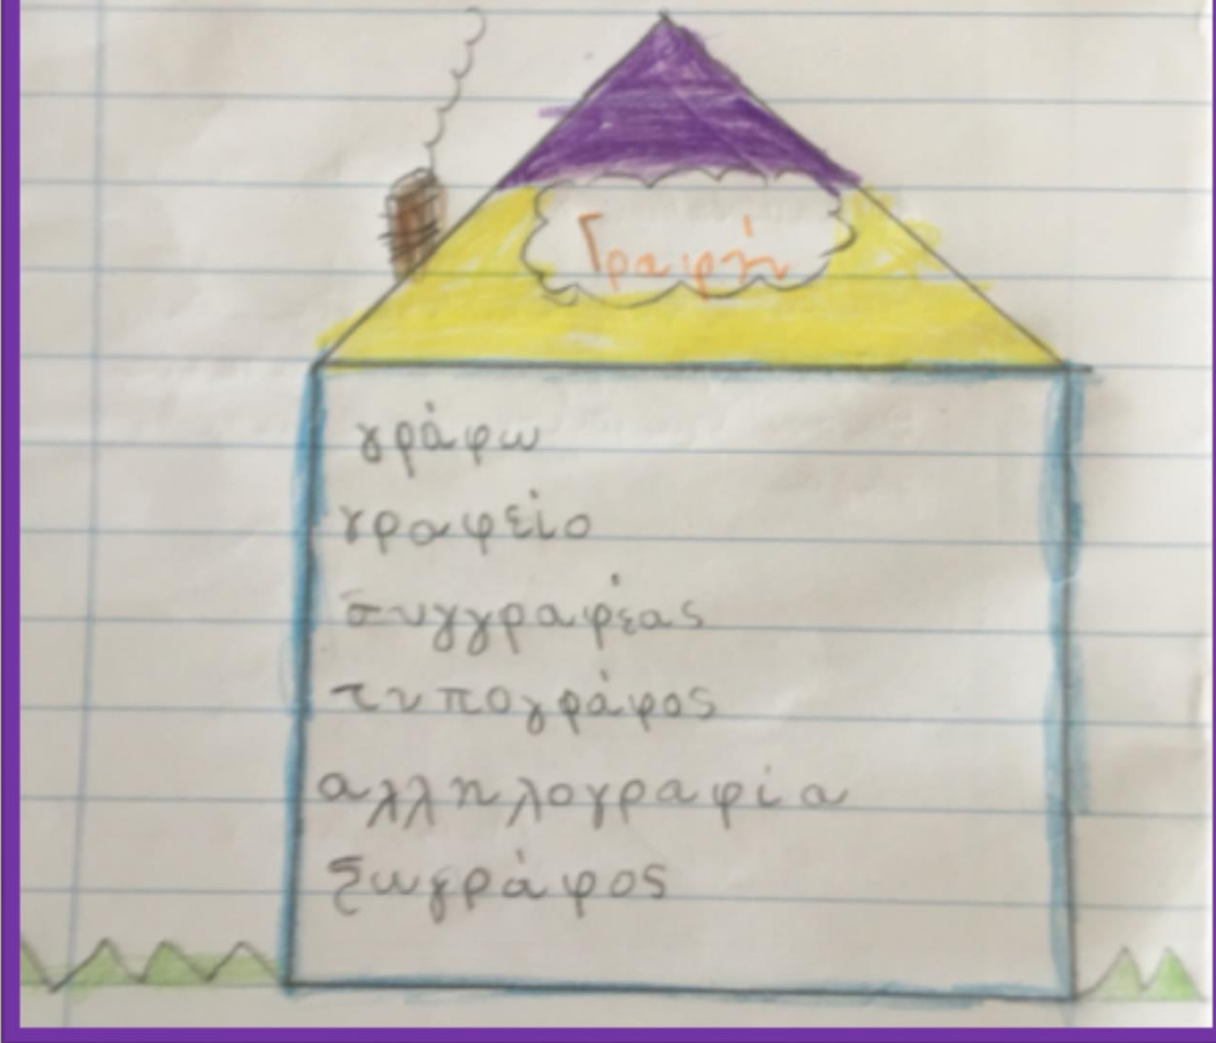 Γραφή
γράφω
γραφείο
συγγραφέας
τυπογράφος
αλληλογραφία
ζωγράφος